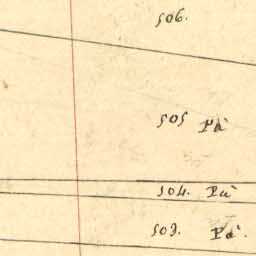 506.
505 Pa
504. Pa
503. Pa.